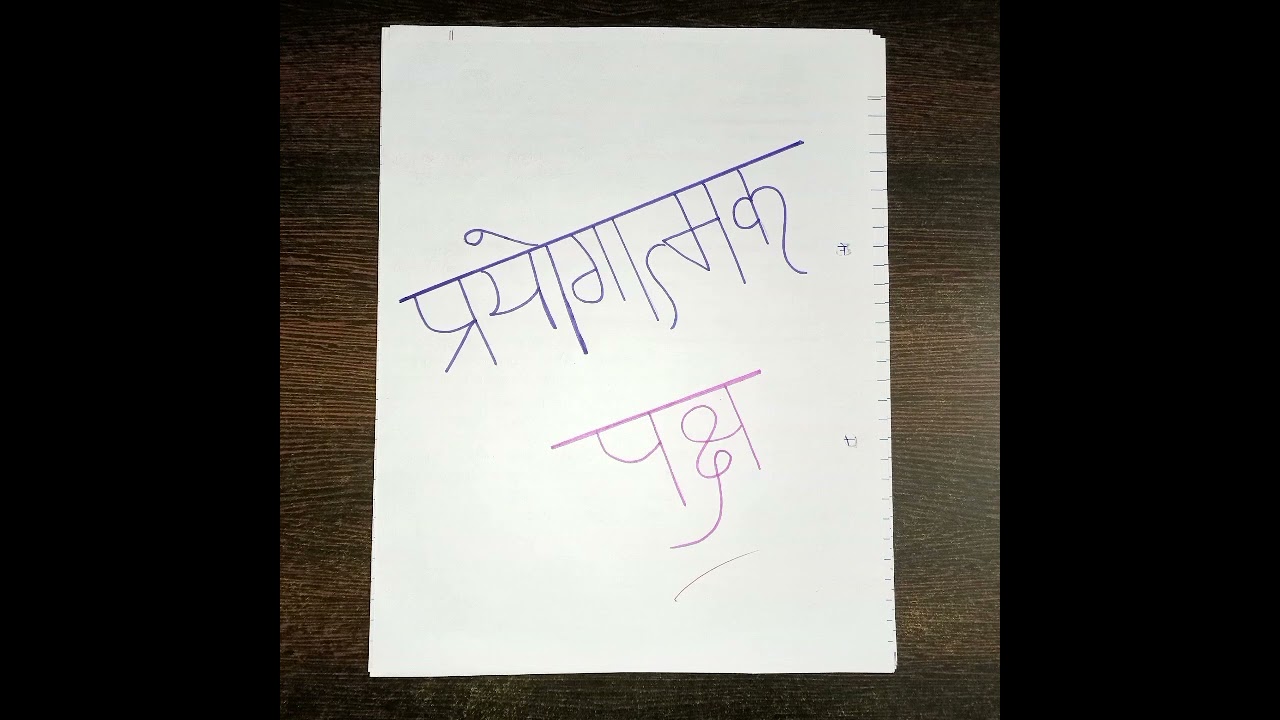 प्रयोगात्मक
पक्ष